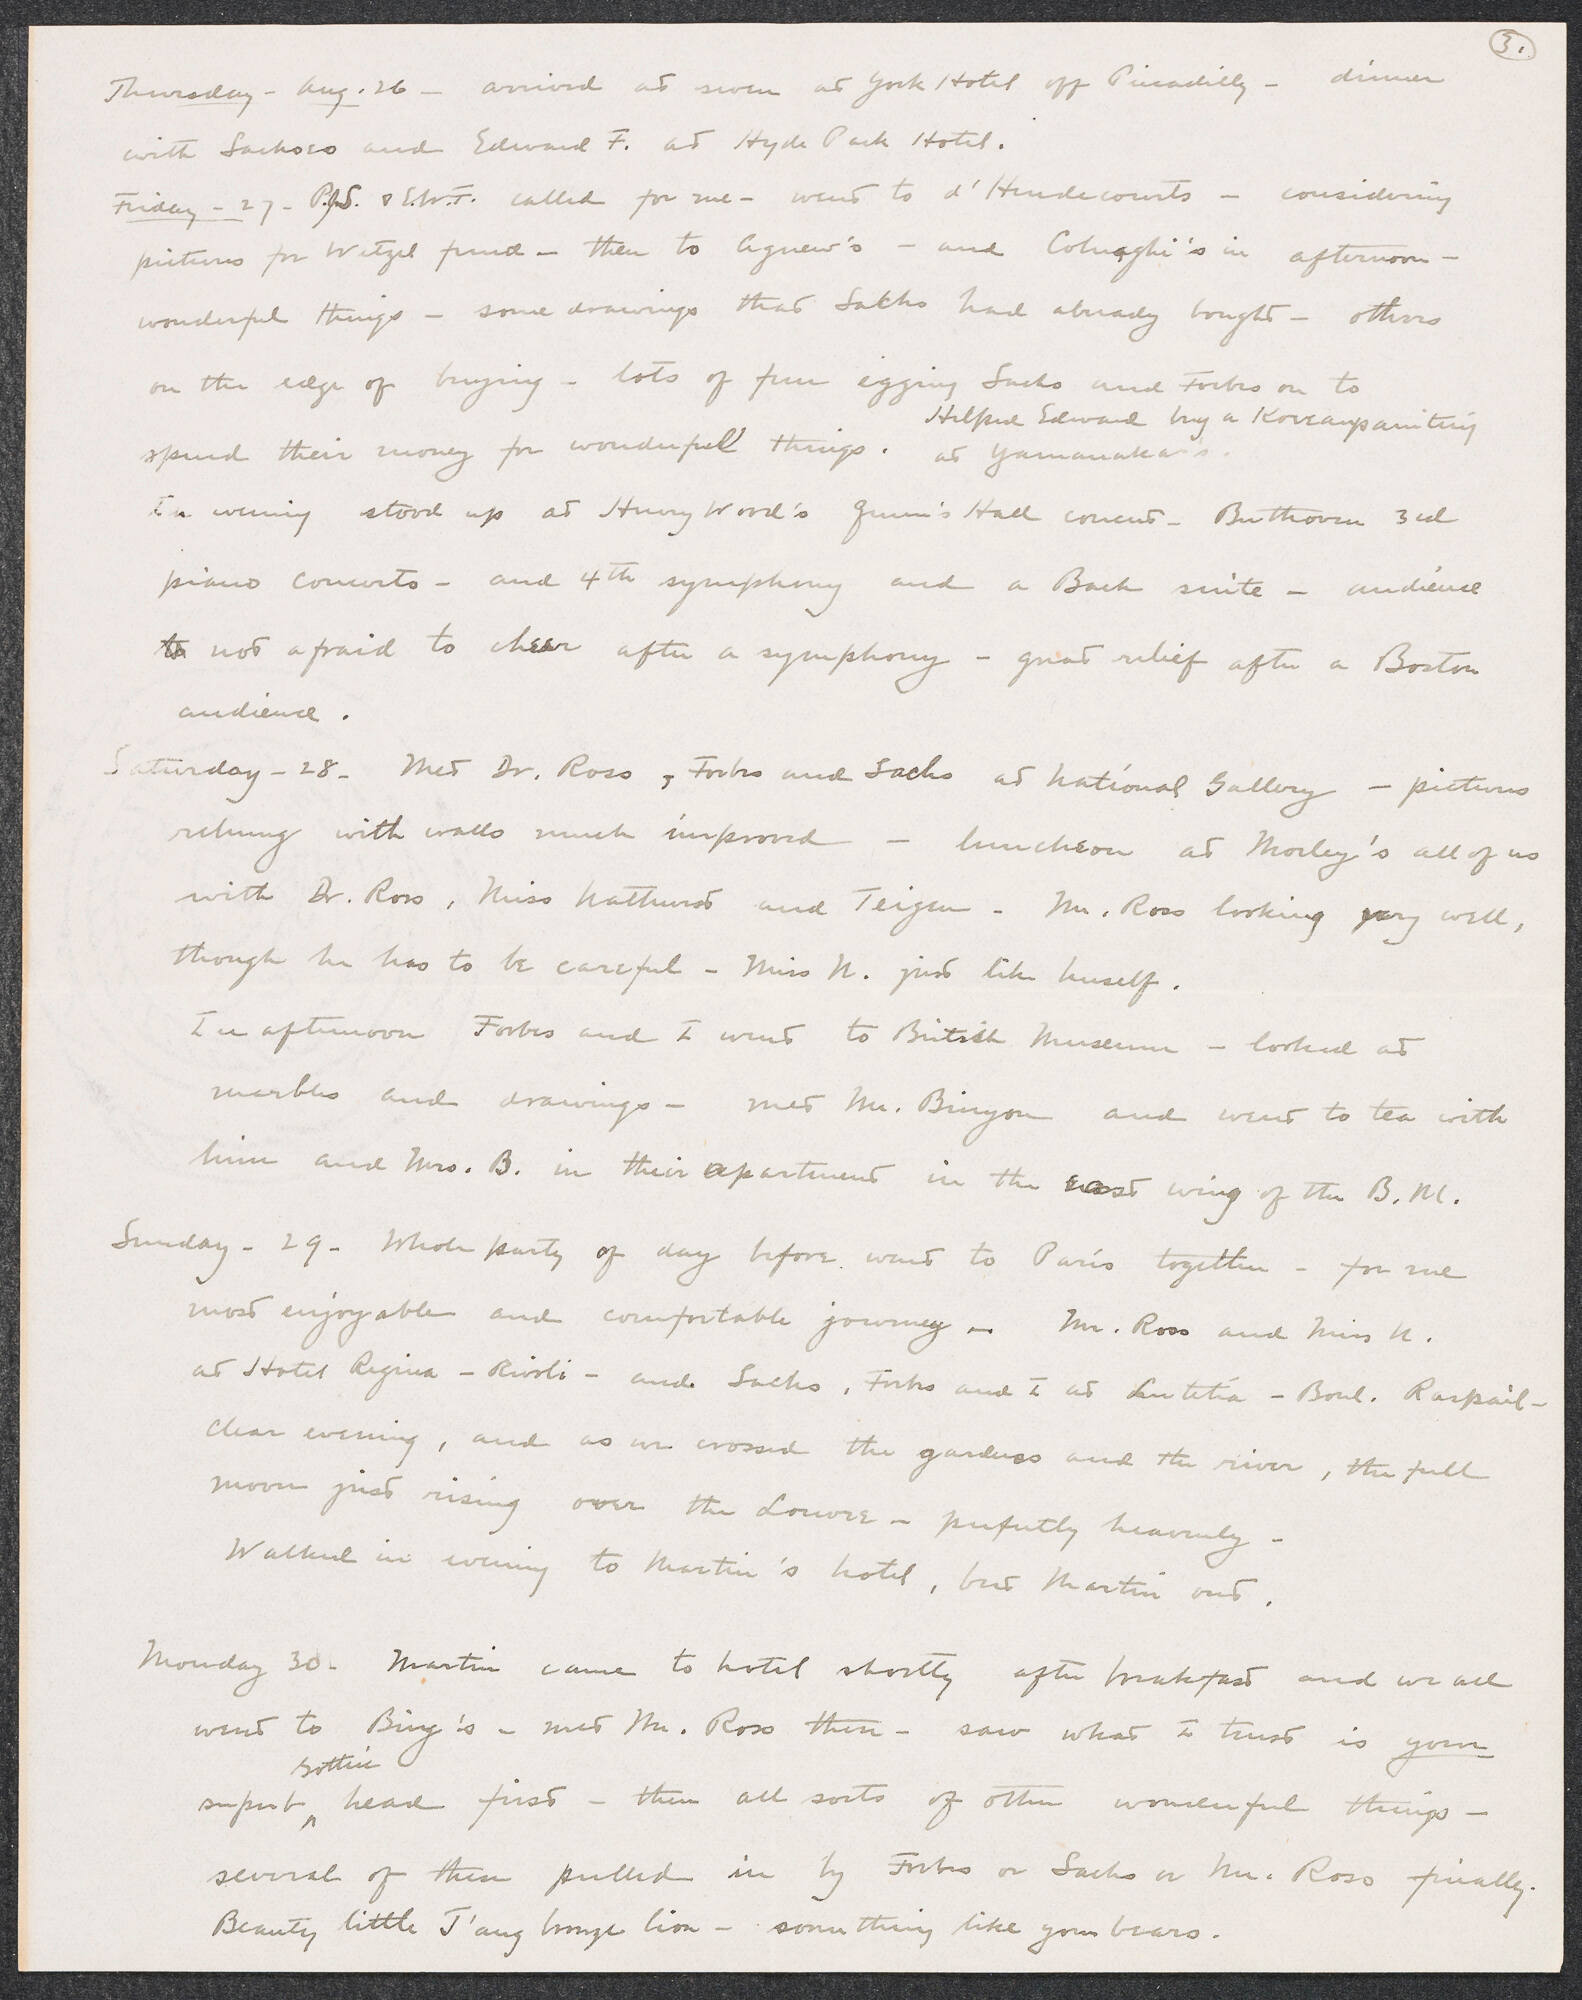 3.
Thursday - Aug. 26 - arrived at seven at York Hotel off Piccadilly - dinner
with Sachses and Edward F. at Hyde Park Hotel.
Friday - 27 - P.J.S. & E.W.F. called for me - went to d'Hendecourts - considering
pictures for Wetzel fund - then to Agnew's - and Colnaghi's in afternoon -
wonderful things - some drawings that Sachs had already bought - others
on the edge of buying - lots of fun egging Sachs and Forbes on to
spend their money for wonderful things. Helped Edward buy a Korean painting
at Yamanaka's.
In evening stood up at Henry Wood's Queen's Hall concert - Beethoven 3rd
piano concerto - and 4th symphony and a Bach suite - audience
not afraid to cheer after a symphony - great relief after a Boston
audience.
Saturday - 28 - Met Dr. Ross, Forbes and Sachs at National Gallery - pictures
rehung with walls much improved - luncheon at Morley's all of us
with Dr. Ross, Miss Nathurst and Teigen - Mr. Ross looking very well,
though he has to be careful - Miss N. just like herself.
In afternoon Forbes and I went to British Museum - looked at
marbles and drawings - met Mr. Binyon and went to tea with
him and Mrs. B. in their apartment in the east wing of the B.M.
Sunday - 29 - Whole party of day before went to Paris together - for me
most enjoyable and comfortable journey - Mr. Ross and Miss N.
at Hotel Regina - Rivoli - and Sachs, Forbes and I at Lutetia - Boul. Raspail -
clear evening, and as we crossed the gardens and the river, the full
moon just rising over the Louvre - perfectly heavenly -
Walked in evening to Martin's hotel, but Martin out.
Monday 30 - Martin came to hotel shortly after breakfast and we all
went to Bing's - met Mr. Ross there - saw what I trust is your
superb Gothic head first - then all sorts of other wonderful things -
several of them pulled in by Forbes or Sachs or Mr. Ross finally.
Beauty little T'ang bronze lion - something like your bears.